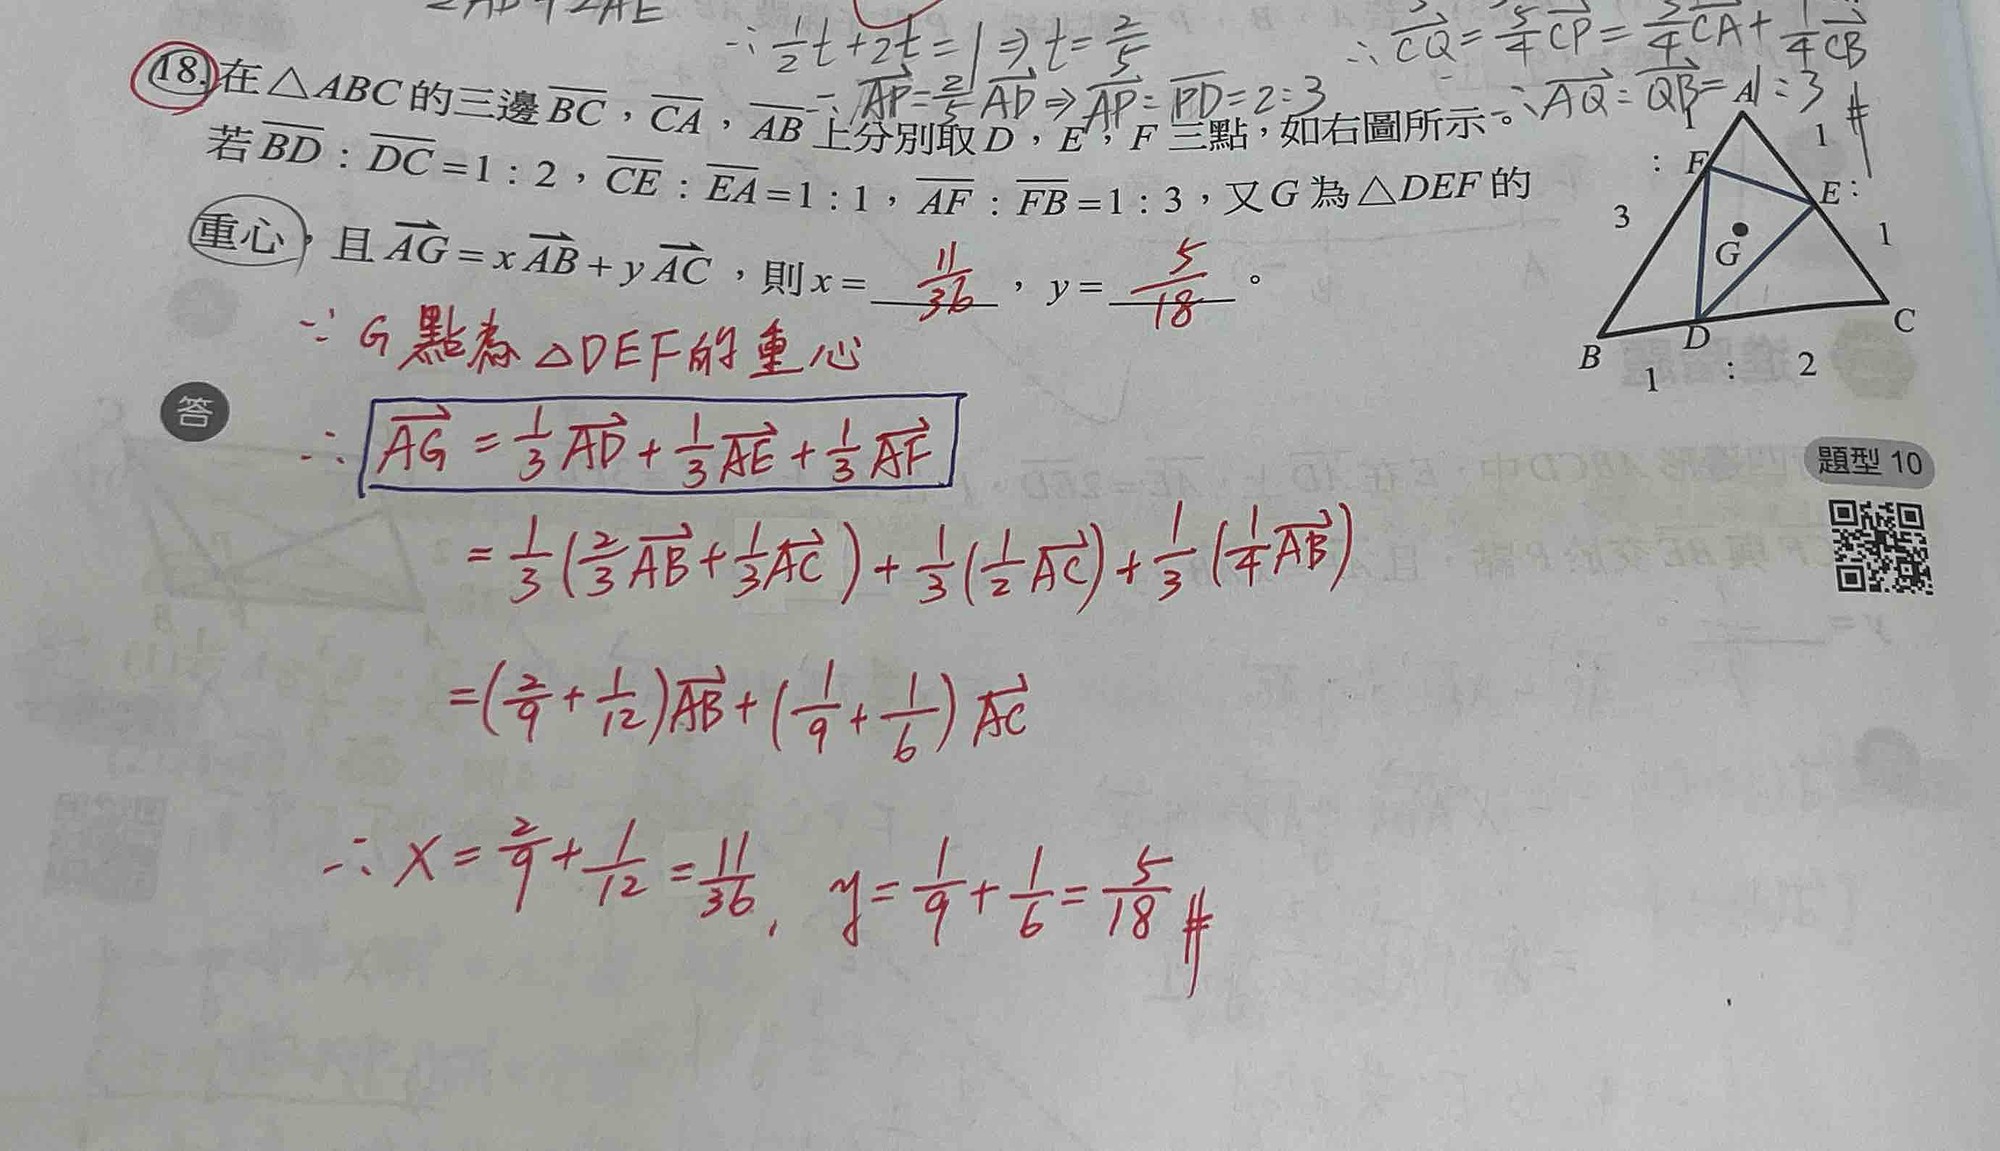 ∴ ½t+2t=1⇒t=2/5
∴ CQ→=5/4 CP→=3/4 CA→+1/4 CB→
∴ AP→=2/5 AD→⇒AP‾:PD‾=2:3
∴ AQ‾:QB‾=1:3 #
18.在△ABC的三邊BC‾，CA‾，AB‾上分別取D，E，F三點，如右圖所示。
若BD‾：DC‾=1：2，CE‾：EA‾=1：1，AF‾：FB‾=1：3，又G為△DEF的
重心，且AG→=xAB→+yAC→，則x=11/36，y=5/18。
A
1
F
:
E
:
3
1
G
B
D
C
1 : 2
∵ G點為△DEF的重心
答
∴ AG→=1/3 AD→+1/3 AE→+1/3 AF→
題型 10
=1/3(2/3 AB→+1/3 AC→)+1/3(1/2 AC→)+1/3(1/4 AB→)
=(2/9+1/12)AB→+(1/9+1/6)AC→
∴ x=2/9+1/12=11/36, y=1/9+1/6=5/18 #